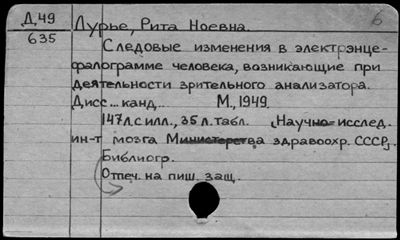 Д.49
635
6
Лурье, Рита Ноевна.
Следовые изменения в электроэнце-
фалограмме человека, возникающие при
деятельности зрительного анализатора.
Дисс... канд... М., 1949.
147 л. с илл., 35 л. табл. (Научно-исслед.
ин-т мозга Министерства здравоохр. СССР).
Библиогр.
Отпеч. на пиш. защ.